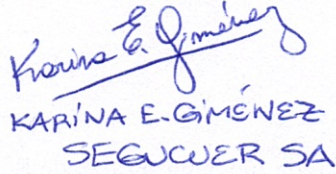 Karina E. Giménez
KARINA E. GIMÉNEZ
SEGUCUER SA